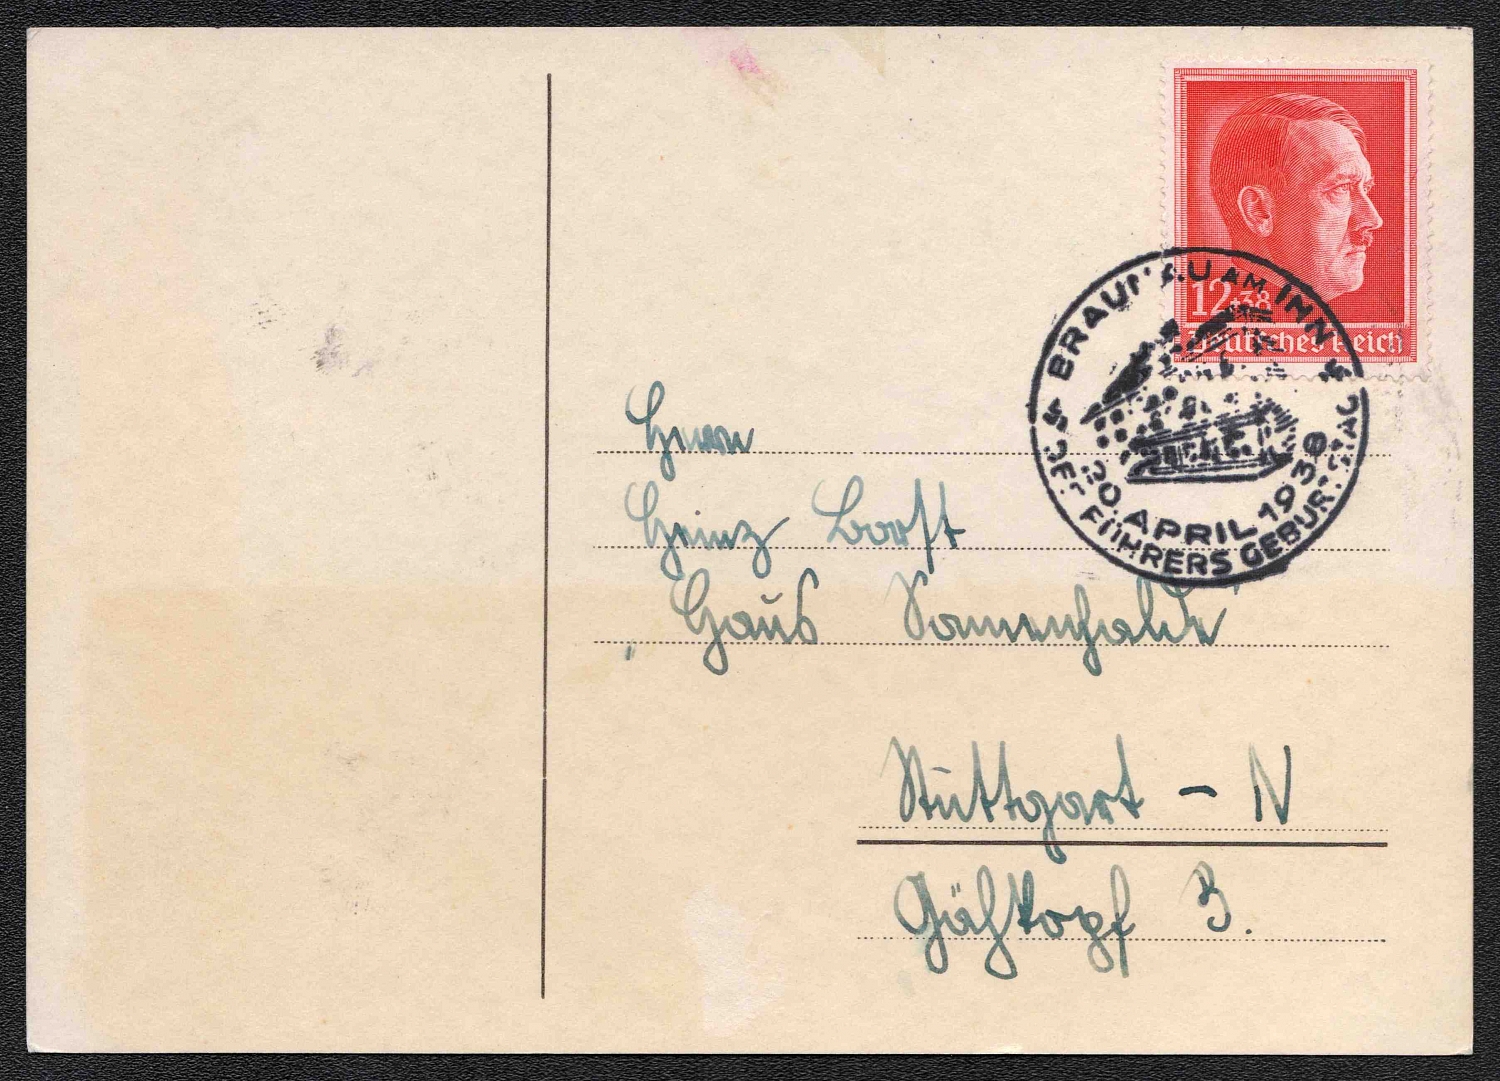 12+38
Deutsches Reich
BRAUNAU AM INN
20 APRIL 1938
DES FÜHRERS GEBURTSTAG
Herrn
Heinz Borst
"Haus Sonnenhalde"
Stuttgart - N
Gähkopf 3.